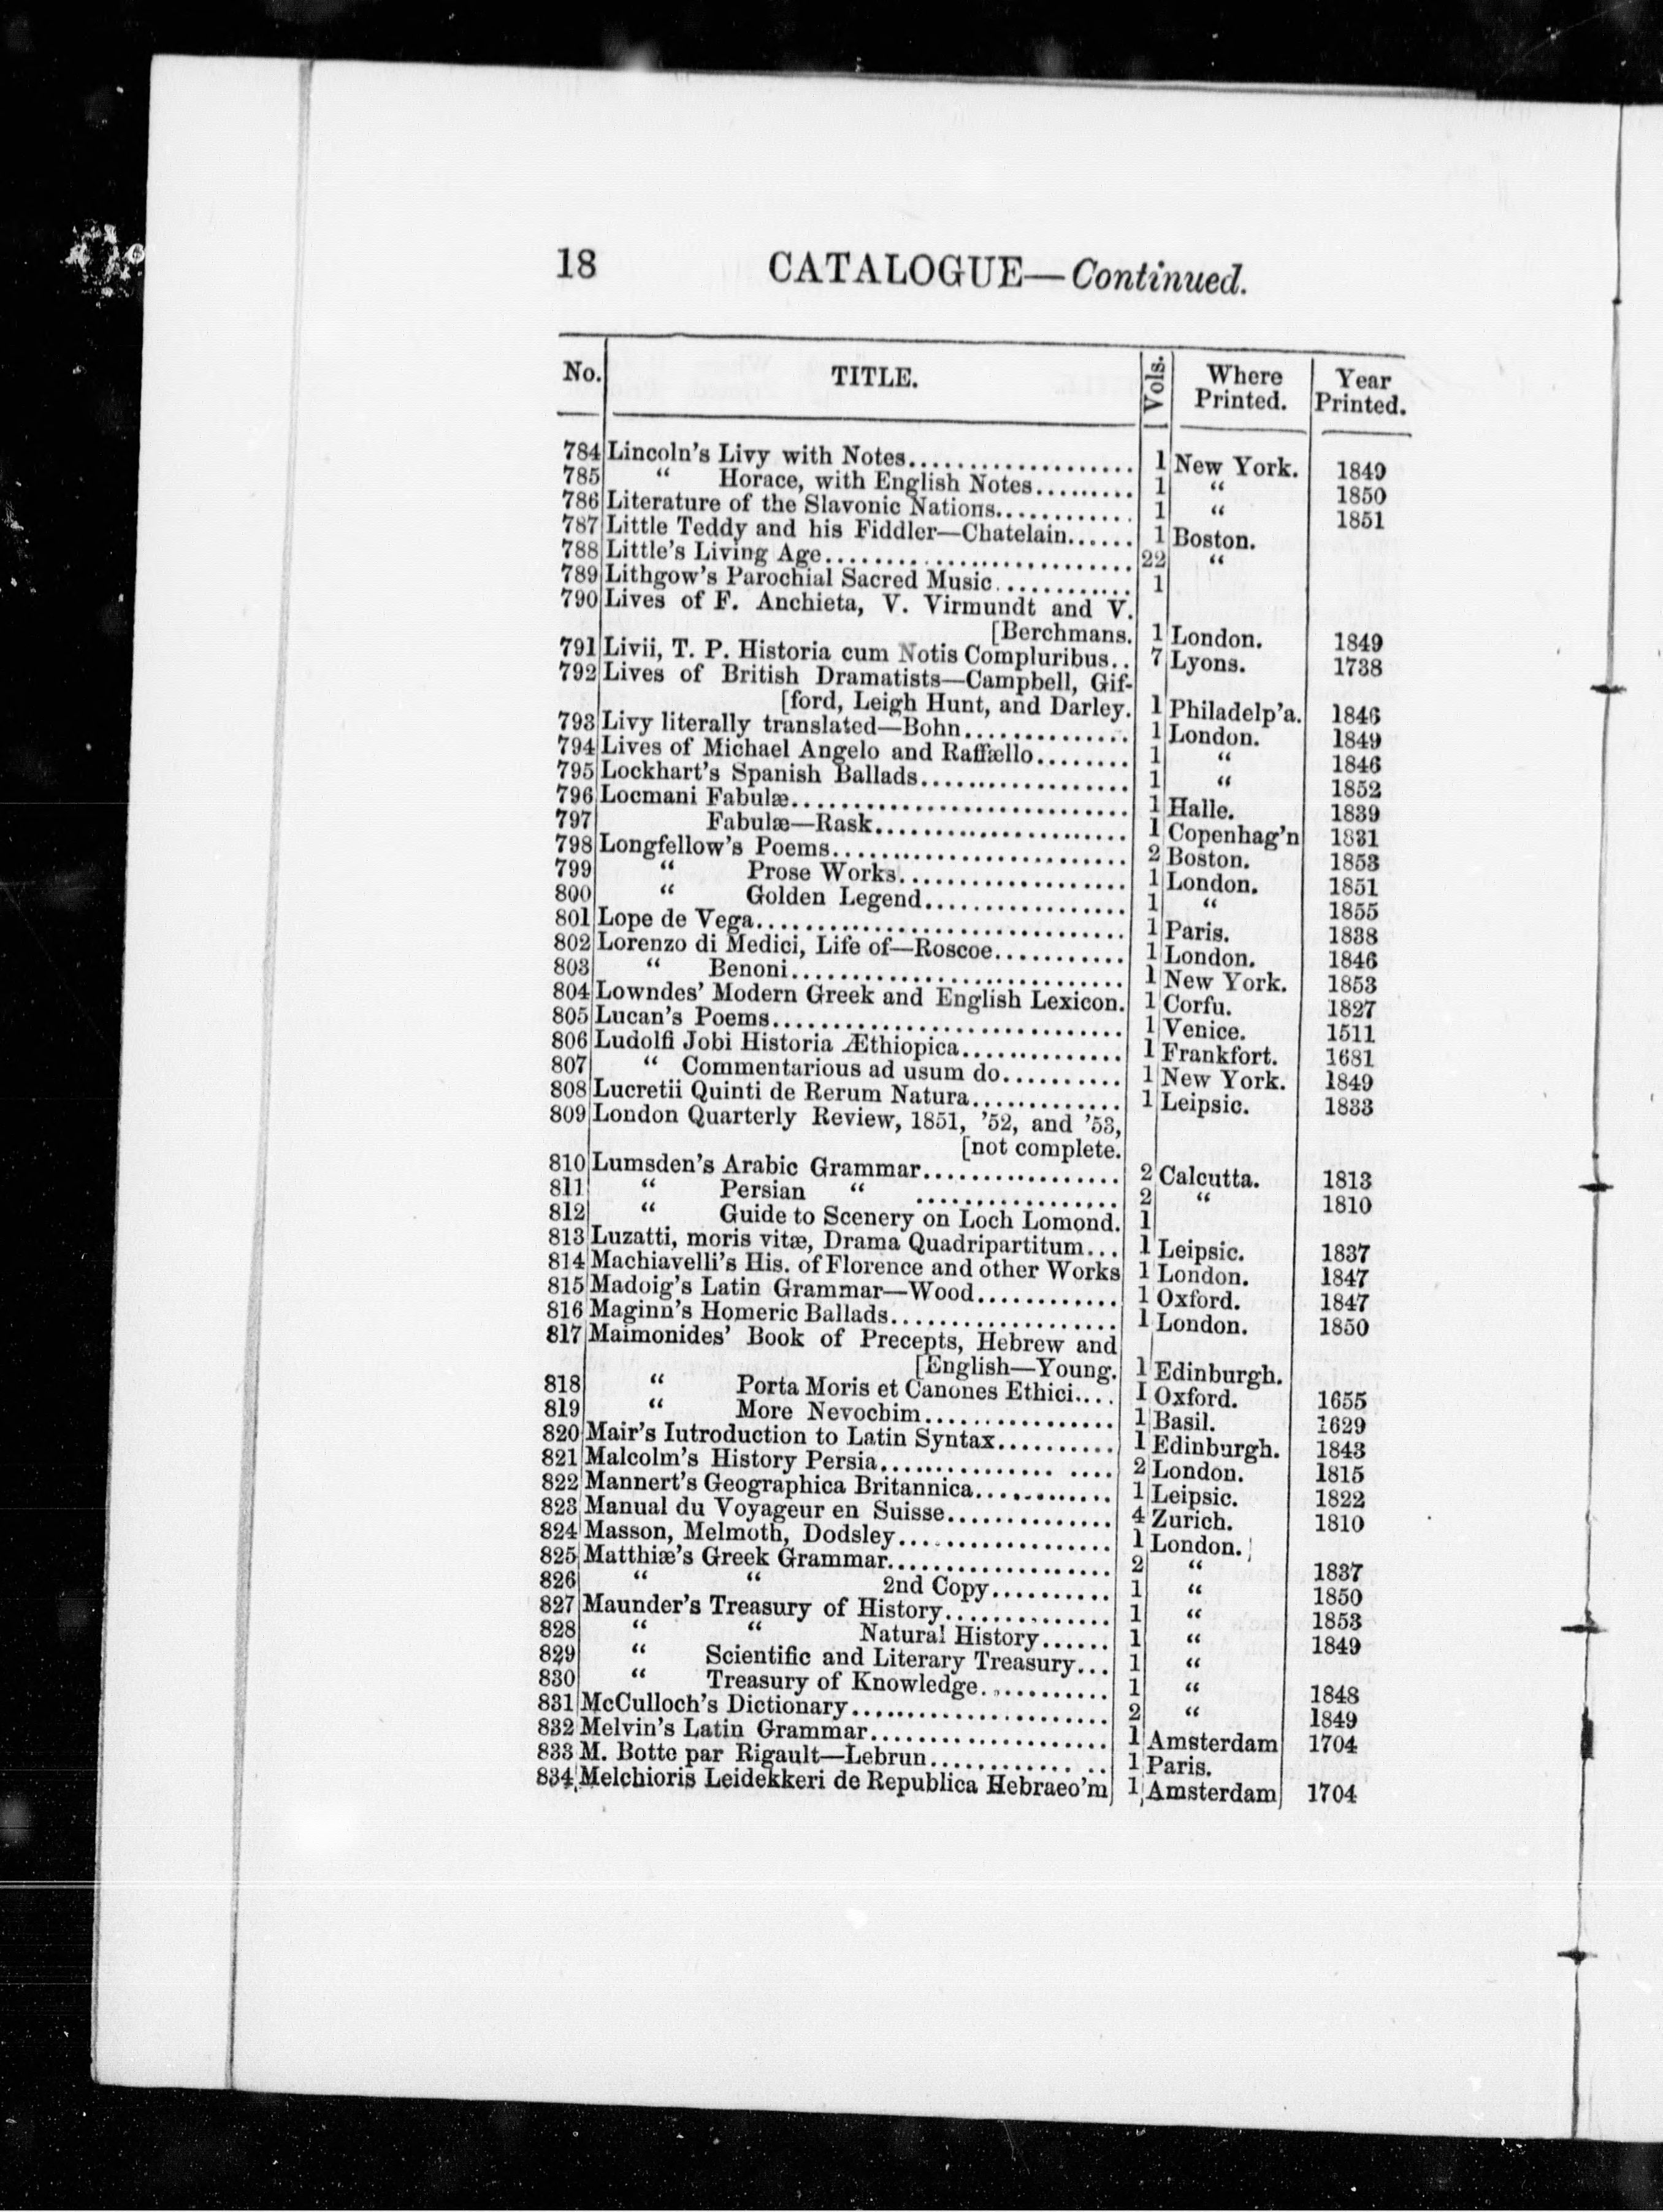 18 CATALOGUE—Continued.
No. TITLE. Vols. Where Printed. Year Printed.
784 Lincoln's Livy with Notes................... 1 New York. 1849
785 “ Horace, with English Notes......... 1 “ 1850
786 Literature of the Slavonic Nations............ 1 “ 1851
787 Little Teddy and his Fiddler—Chatelain...... 1 Boston.
788 Little's Living Age.......................... 22 “
789 Lithgow's Parochial Sacred Music............ 1
790 Lives of F. Anchieta, V. Virmundt and V.
[Berchmans. 1 London. 1849
791 Livii, T. P. Historia cum Notis Compluribus.. 7 Lyons. 1738
792 Lives of British Dramatists—Campbell, Gif-
[ford, Leigh Hunt, and Darley. 1 Philadelp'a. 1846
793 Livy literally translated—Bohn.............. 1 London. 1849
794 Lives of Michael Angelo and Raffællo........ 1 “ 1846
795 Lockhart's Spanish Ballads.................. 1 “ 1852
796 Locmani Fabulæ............................ 1 Halle. 1839
797 Fabulæ—Rask..................... 1 Copenhag'n 1831
798 Longfellow's Poems........................ 2 Boston. 1853
799 “ Prose Works................... 1 London. 1851
800 “ Golden Legend................. 1 “ 1855
801 Lope de Vega.............................. 1 Paris. 1838
802 Lorenzo di Medici, Life of—Roscoe........... 1 London. 1846
803 “ Benoni........................... 1 New York. 1853
804 Lowndes' Modern Greek and English Lexicon. 1 Corfu. 1827
805 Lucan's Poems............................. 1 Venice. 1511
806 Ludolfi Jobi Historia Æthiopica.............. 1 Frankfort. 1681
807 “ Commentarious ad usum do.......... 1 New York. 1849
808 Lucretii Quinti de Rerum Natura............. 1 Leipsic. 1833
809 London Quarterly Review, 1851, '52, and '53,
[not complete.
810 Lumsden's Arabic Grammar................. 2 Calcutta. 1813
811 “ Persian “ ................. 2 “ 1810
812 “ Guide to Scenery on Loch Lomond. 1
813 Luzatti, moris vitæ, Drama Quadripartitum... 1 Leipsic. 1837
814 Machiavelli's His. of Florence and other Works 1 London. 1847
815 Madoig's Latin Grammar—Wood............ 1 Oxford. 1847
816 Maginn's Homeric Ballads................... 1 London. 1850
817 Maimonides' Book of Precepts, Hebrew and
[English—Young. 1 Edinburgh.
818 “ Porta Moris et Canones Ethici.... 1 Oxford. 1655
819 “ More Nevochim................ 1 Basil. 1629
820 Mair's Iutroduction to Latin Syntax.......... 1 Edinburgh. 1843
821 Malcolm's History Persia............... .... 2 London. 1815
822 Mannert's Geographica Britannica............ 1 Leipsic. 1822
823 Manual du Voyageur en Suisse.............. 4 Zurich. 1810
824 Masson, Melmoth, Dodsley.................. 1 London.
825 Matthiæ's Greek Grammar................... 2 “ 1837
826 “ “ 2nd Copy.......... 1 “ 1850
827 Maunder's Treasury of History.............. 1 “ 1853
828 “ “ Natural History...... 1 “ 1849
829 “ Scientific and Literary Treasury... 1 “
830 “ Treasury of Knowledge........... 1 “ 1848
831 McCulloch's Dictionary..................... 2 “ 1849
832 Melvin's Latin Grammar.................... 1 Amsterdam 1704
833 M. Botte par Rigault—Lebrun............ .. 1 Paris.
834 Melchioris Leidekkeri de Republica Hebraeo'm 1 Amsterdam 1704